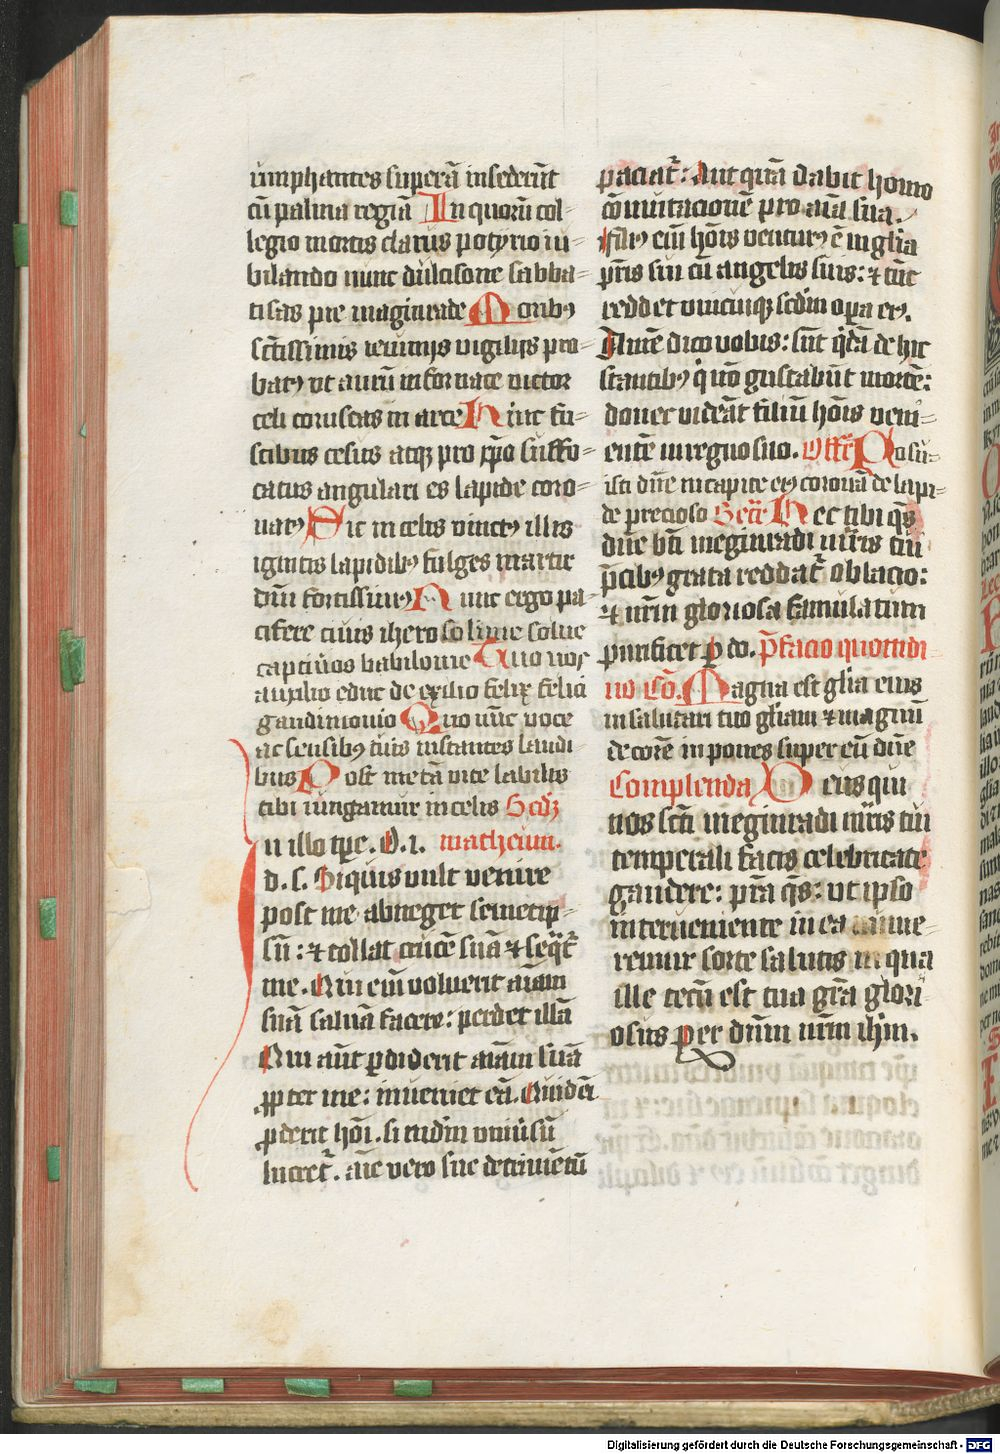 umphantes superā insederūt
cū palma regiā In quorū col-
legio mortis clarus potyrio iu-
bilando nunc dulcisone sabba-
tisas pre maginrade Moribꝰ
sctīssimis ieiunijs vigilijs pro-
batꝰ vt aurū in fornace victor
celi coruscas in arce Hinc fu-
stibus cesus atqꝫ pro xp̄o suffo-
catus angulari es lapide coro-
natꝰ Sic in celis vinctꝰ illis
ignitis lapidibꝰ fulges martir
dn̄i fortissimꝰ Nunc ergo pa-
cifere ciuis ihero solime solue
captiuos babilonie Tuo nos
auxilio educ de exilio felix felici
gaudimonio Quo nūc voce
ac sensibꝰ tuis instantes laudi-
bus Post metā vite labilis
tibi iungamur in celis Scdꝫ
n illo tp̄e. D. i. matheum.
d. s. Siquis vult venire
post me abneget semetip-
sū: ⁊ tollat crucē suā ⁊ seqt̄
me. Qui em̄ voluerit aīam
suā saluā facere: perdet illā
Qui aūt ꝑdiderit aīam suā
ꝓpter me: inueniet eā. Quid em̄
ꝓderit hōi. si mūdm̄ vniūsū
lucret̄. aīe vero sue detrimētū
paciat̄: Aut quā dabit homo
cōmutacionē pro aīa sua.
Filiꝰ em̄ hōis venturꝰ ē in gl̄ia
pr̄is sui cū angelis suis: ⁊ tūc
reddet vnicuiqꝫ scdm̄ oꝑa eiꝰ.
Amē dico vobis: sūt qdā de hic
stantibꝰ q nō gustabūt mortē:
donec videāt filiū hōis veni-
entē in regno suo. Offr̄ Posu-
isti dn̄e in capite eiꝰ coronā de lapi-
de precioso Secr̄ Hec tibi qs̄
dn̄e bt̄i meginradi mr̄is tui
p̄cibꝰ grata reddat̄ oblacio:
⁊ nr̄m gloriosa famulatum
purificet ꝑ do. p̄facio quotidi-
no Cō. Magna est gl̄ia eius
in salutari tuo gl̄iam ⁊ magnū
decorē inpones super eū dn̄e
Complenda Deus qui
nos scti meginradi mr̄is tui
temperali facis celebritate
gaudere: pr̄a qs̄: vt ipso
interueniente in ea nume-
remur sorte salutis in qua
ille tecū est tua gr̄a glori-
osus per dn̄m nr̄m ihm̄.
Digitalisierung gefördert durch die Deutsche Forschungsgemeinschaft - DFG